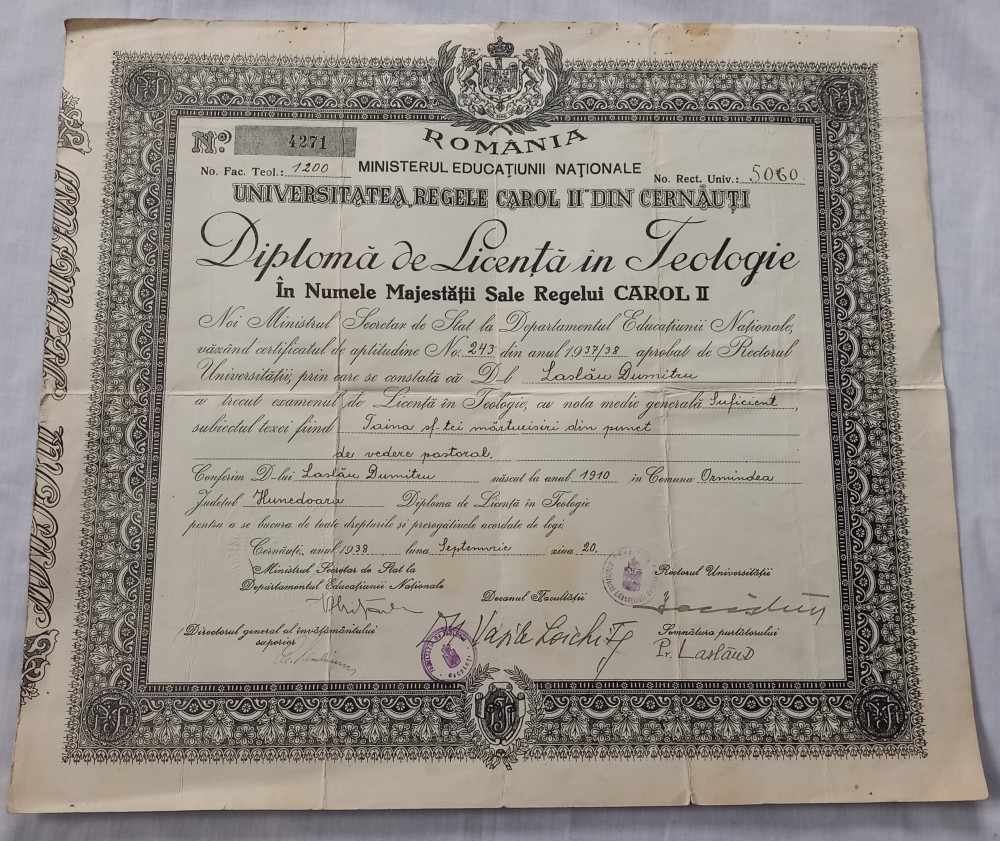 ROMÂNIA
Nº 4271
MINISTERUL EDUCAŢIUNII NAŢIONALE
No. Fac. Teol.: 1200
No. Rect. Univ.: 5060
UNIVERSITATEA „REGELE CAROL II” DIN CERNĂUŢI
Diplomă de Licenţă în Teologie
În Numele Majestăţii Sale Regelui CAROL II
Noi Ministrul Secretar de Stat la Departamentul Educaţiunii Naţionale,
văzând certificatul de aptitudine No. 243 din anul 1937/38 aprobat de Rectorul
Universităţii, prin care se constată că D-l Laslău Dumitru
a trecut examenul de Licenţă în Teologie, cu nota medie generală Suficient,
subiectul tezei fiind Taina sf-tei mărturisiri din punct
de vedere pastoral.
Conferim D-lui Laslău Dumitru născut la anul 1910 în Comuna Ormindea
Judeţul Hunedoara Diploma de Licenţă în Teologie
pentru a se bucura de toate drepturile şi prerogativele acordate de legi.
Cernăuţi, anul 1938 luna Septemvrie ziua 20.
Ministrul Secretar de Stat la
Departamentul Educaţiunii Naţionale
Rectorul Universităţii
Decanul Facultăţii
Directorul general al învăţământului
superior
Vasile Loichiţă
Semnătura purtătorului
Pr. Laslău D